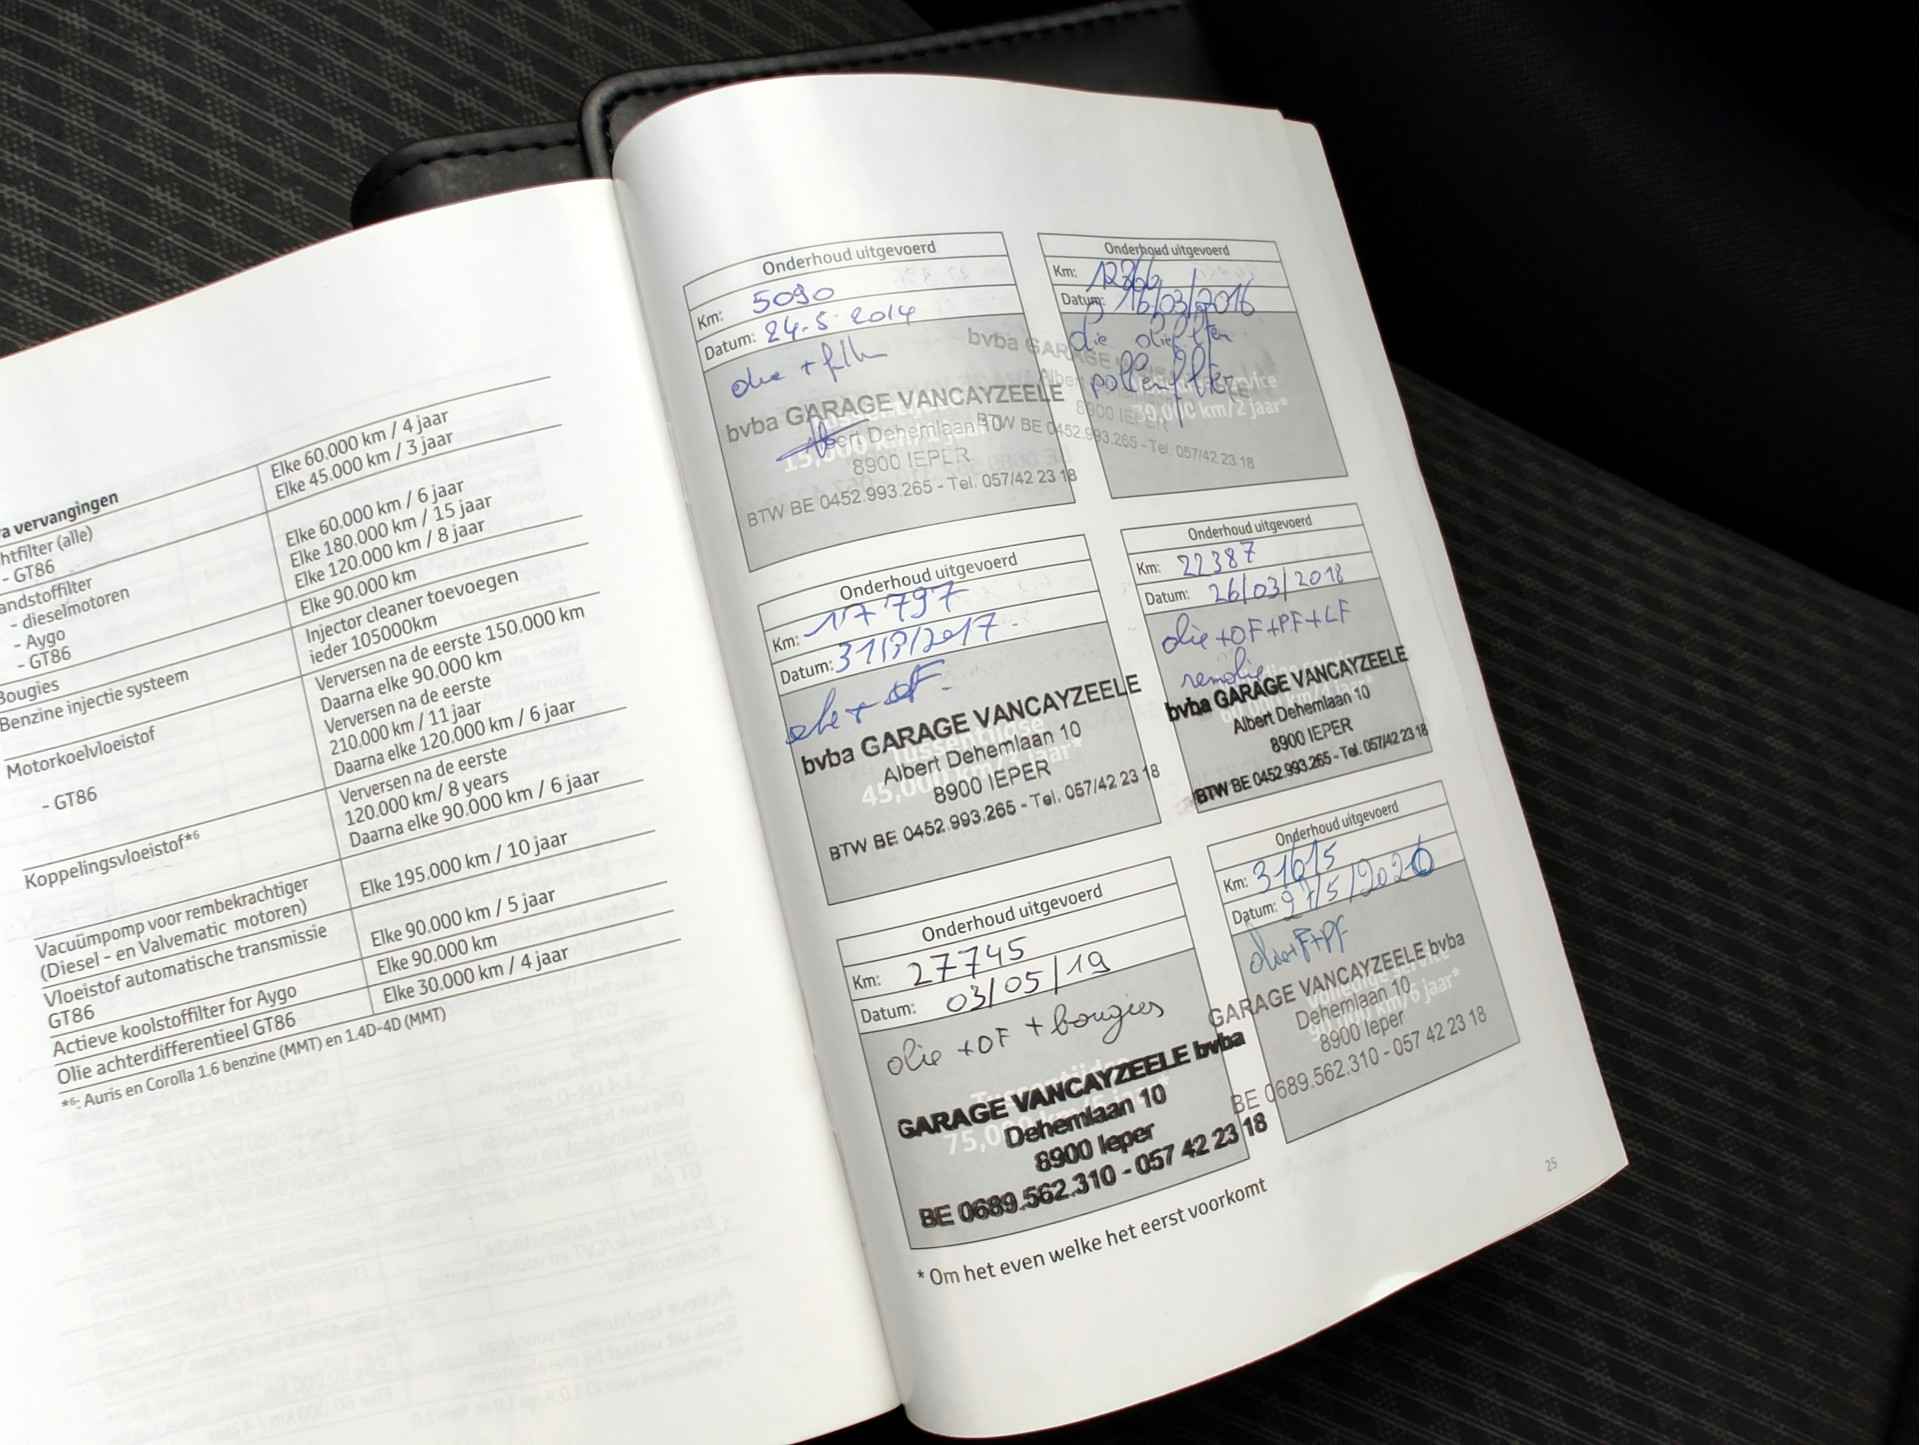 a vervangingen
htfilter (alle)
Elke 60.000 km / 4 jaar
- GT86
Elke 45.000 km / 3 jaar
andstoffilter
- dieselmotoren
Elke 60.000 km / 6 jaar
- Aygo
Elke 180.000 km / 15 jaar
- GT86
Elke 120.000 km / 8 jaar
Bougies
Elke 90.000 km
Benzine injectie systeem
Injector cleaner toevoegen
ieder 105000km
Motorkoelvloeistof
Verversen na de eerste 150.000 km
Daarna elke 90.000 km
- GT86
Verversen na de eerste
210.000 km / 11 jaar
Daarna elke 120.000 km / 6 jaar
Koppelingsvloeistof*6
Verversen na de eerste
120.000 km/ 8 years
Daarna elke 90.000 km / 6 jaar
Vacuümpomp voor rembekrachtiger
(Diesel - en Valvematic motoren)
Elke 195.000 km / 10 jaar
Vloeistof automatische transmissie
GT86
Elke 90.000 km / 5 jaar
Actieve koolstoffilter for Aygo
Elke 90.000 km
Olie achterdifferentieel GT86
Elke 30.000 km / 4 jaar
*6: Auris en Corolla 1.6 benzine (MMT) en 1.4D-4D (MMT)
Onderhoud uitgevoerd
Km: 5090
Datum: 24-5-2014
olie + filt
bvba GARAGE VANCAYZEELE
Albert Dehemlaan 10
8900 IEPER
BTW BE 0452.993.265 - Tel. 057/42 23 18
Onderhoud uitgevoerd
Km: 12366
Datum: 16/03/2016
olie oliefilter
pollenfilter
bvba GARAGE
30,000 km/2 jaar*
8900 IEPER
BTW BE 0452.993.265 - Tel. 057/42 23 18
Onderhoud uitgevoerd
Km: 17797
Datum: 31/3/2017
olie + OF
bvba GARAGE VANCAYZEELE
Albert Dehemlaan 10
45,000 km/3 jaar*
8900 IEPER
BTW BE 0452.993.265 - Tel. 057/42 23 18
Onderhoud uitgevoerd
Km: 22387
Datum: 26/03/2018
olie + OF + PF + LF
remolie
bvba GARAGE VANCAYZEELE
Albert Dehemlaan 10
8900 IEPER
BTW BE 0452.993.265 - Tel. 057/42 23 18
Onderhoud uitgevoerd
Km: 27745
Datum: 03/05/19
olie + OF + bougies
GARAGE VANCAYZEELE bvba
Dehemlaan 10
8900 Ieper
BE 0689.562.310 - 057 42 23 18
Onderhoud uitgevoerd
Km: 31615
Datum: 27/5/2020
olie+F+PF
GARAGE VANCAYZEELE bvba
Dehemlaan 10
8900 Ieper
BE 0689.562.310 - 057 42 23 18
* Om het even welke het eerst voorkomt
25